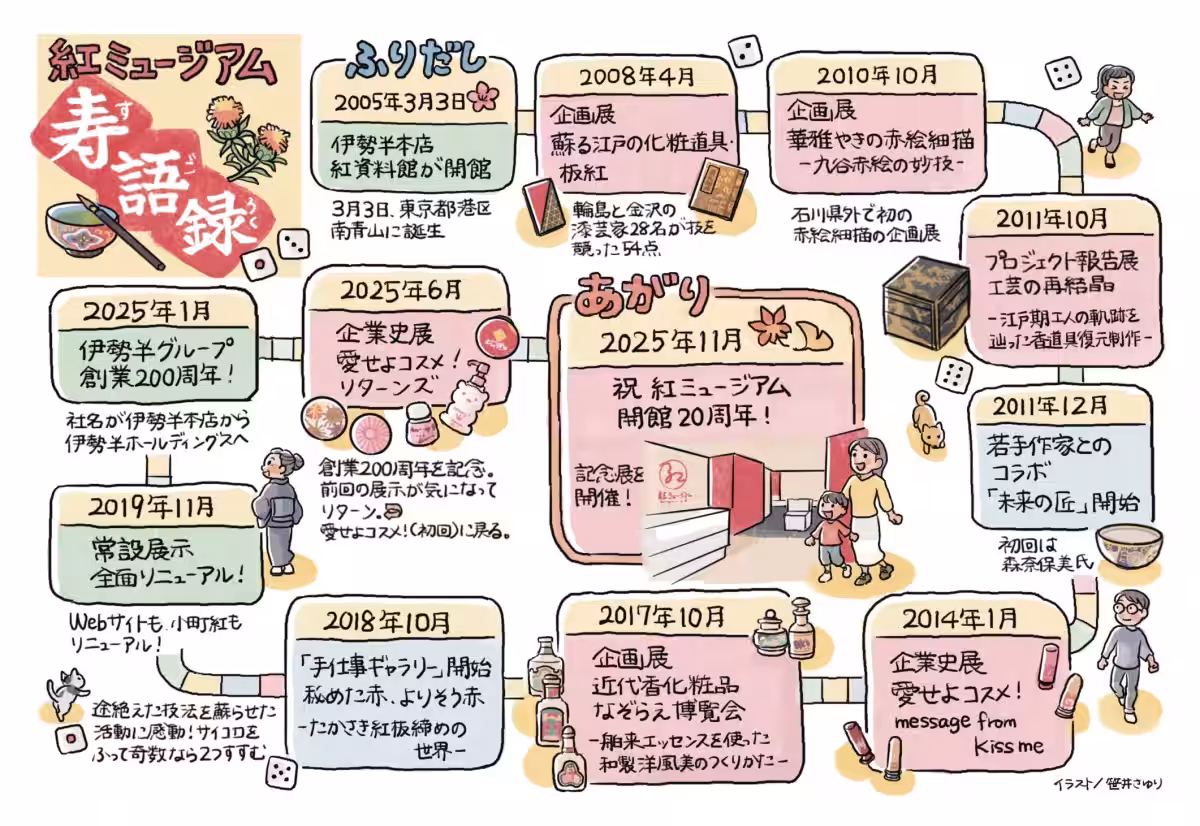 紅ミュージアム
寿語録
すごろく
ふりだし
2005年3月3日
伊勢半本店
紅資料館が開館
3月3日、東京都港区
南青山に誕生
2008年4月
企画展
蘇る江戸の化粧道具・
板紅
輪島と金沢の
漆芸家28名が技を
競った54点
2010年10月
企画展
華雅やきの赤絵細描
-九谷赤絵の妙技-
石川県外で初の
赤絵細描の企画展
2011年10月
プロジェクト報告展
工芸の再結晶
-江戸期工人の軌跡を
辿った香道具復元制作-
2011年12月
若手作家との
コラボ
「未来の匠」開始
初回は
森奈保美氏
2014年1月
企業史展
愛せよコスメ!
message from
Kiss me
2017年10月
企画展
近代香化粧品
なぞらえ博覧会
-舶来エッセンスを使った
和製洋風美のつくりかた-
2018年10月
「手仕事ギャラリー」開始
秘めた赤、よりそう赤
-たかさき紅板締めの
世界-
途絶えた技法を蘇らせた
活動に感動!サイコロを
ふって奇数なら2つすすむ
2019年11月
常設展示
全面リニューアル!
Webサイトも、小町紅も
リニューアル!
2025年1月
伊勢半グループ
創業200周年!
社名が伊勢半本店から
伊勢半ホールディングスへ
2025年6月
企業史展
愛せよコスメ!
リターンズ
創業200周年を記念。
前回の展示が気になって
リターン。
愛せよコスメ!(初回)に戻る。
あがり
2025年11月
祝 紅ミュージアム
開館20周年!
記念展を
開催!
紅
紅ミュージアム
イラスト/笹井さゆり